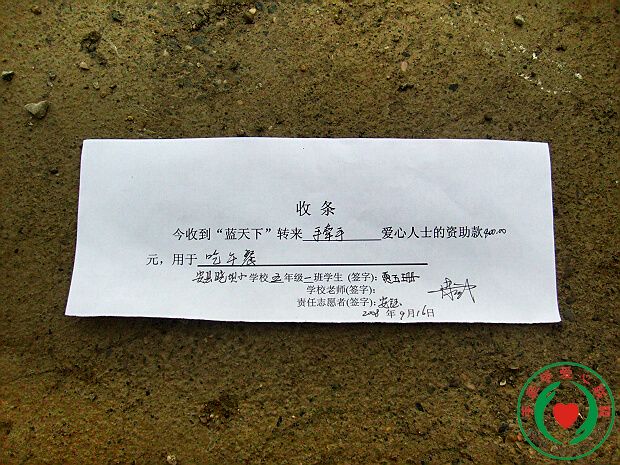 收 条
今收到“蓝天下”转来 手牵手 爱心人士的资助款400.00
元,用于 吃午餐
学校五年级一班学生(签字):
学校老师(签字):
责任志愿者(签字):
2008年9月16日